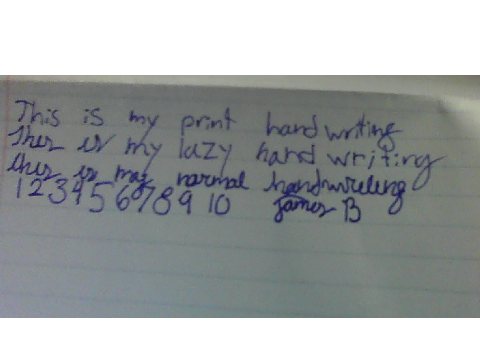 This is my print handwriting
This is my lazy handwriting
this is my normal handwriting
1 2 3 4 5 6 7 8 9 10 James B